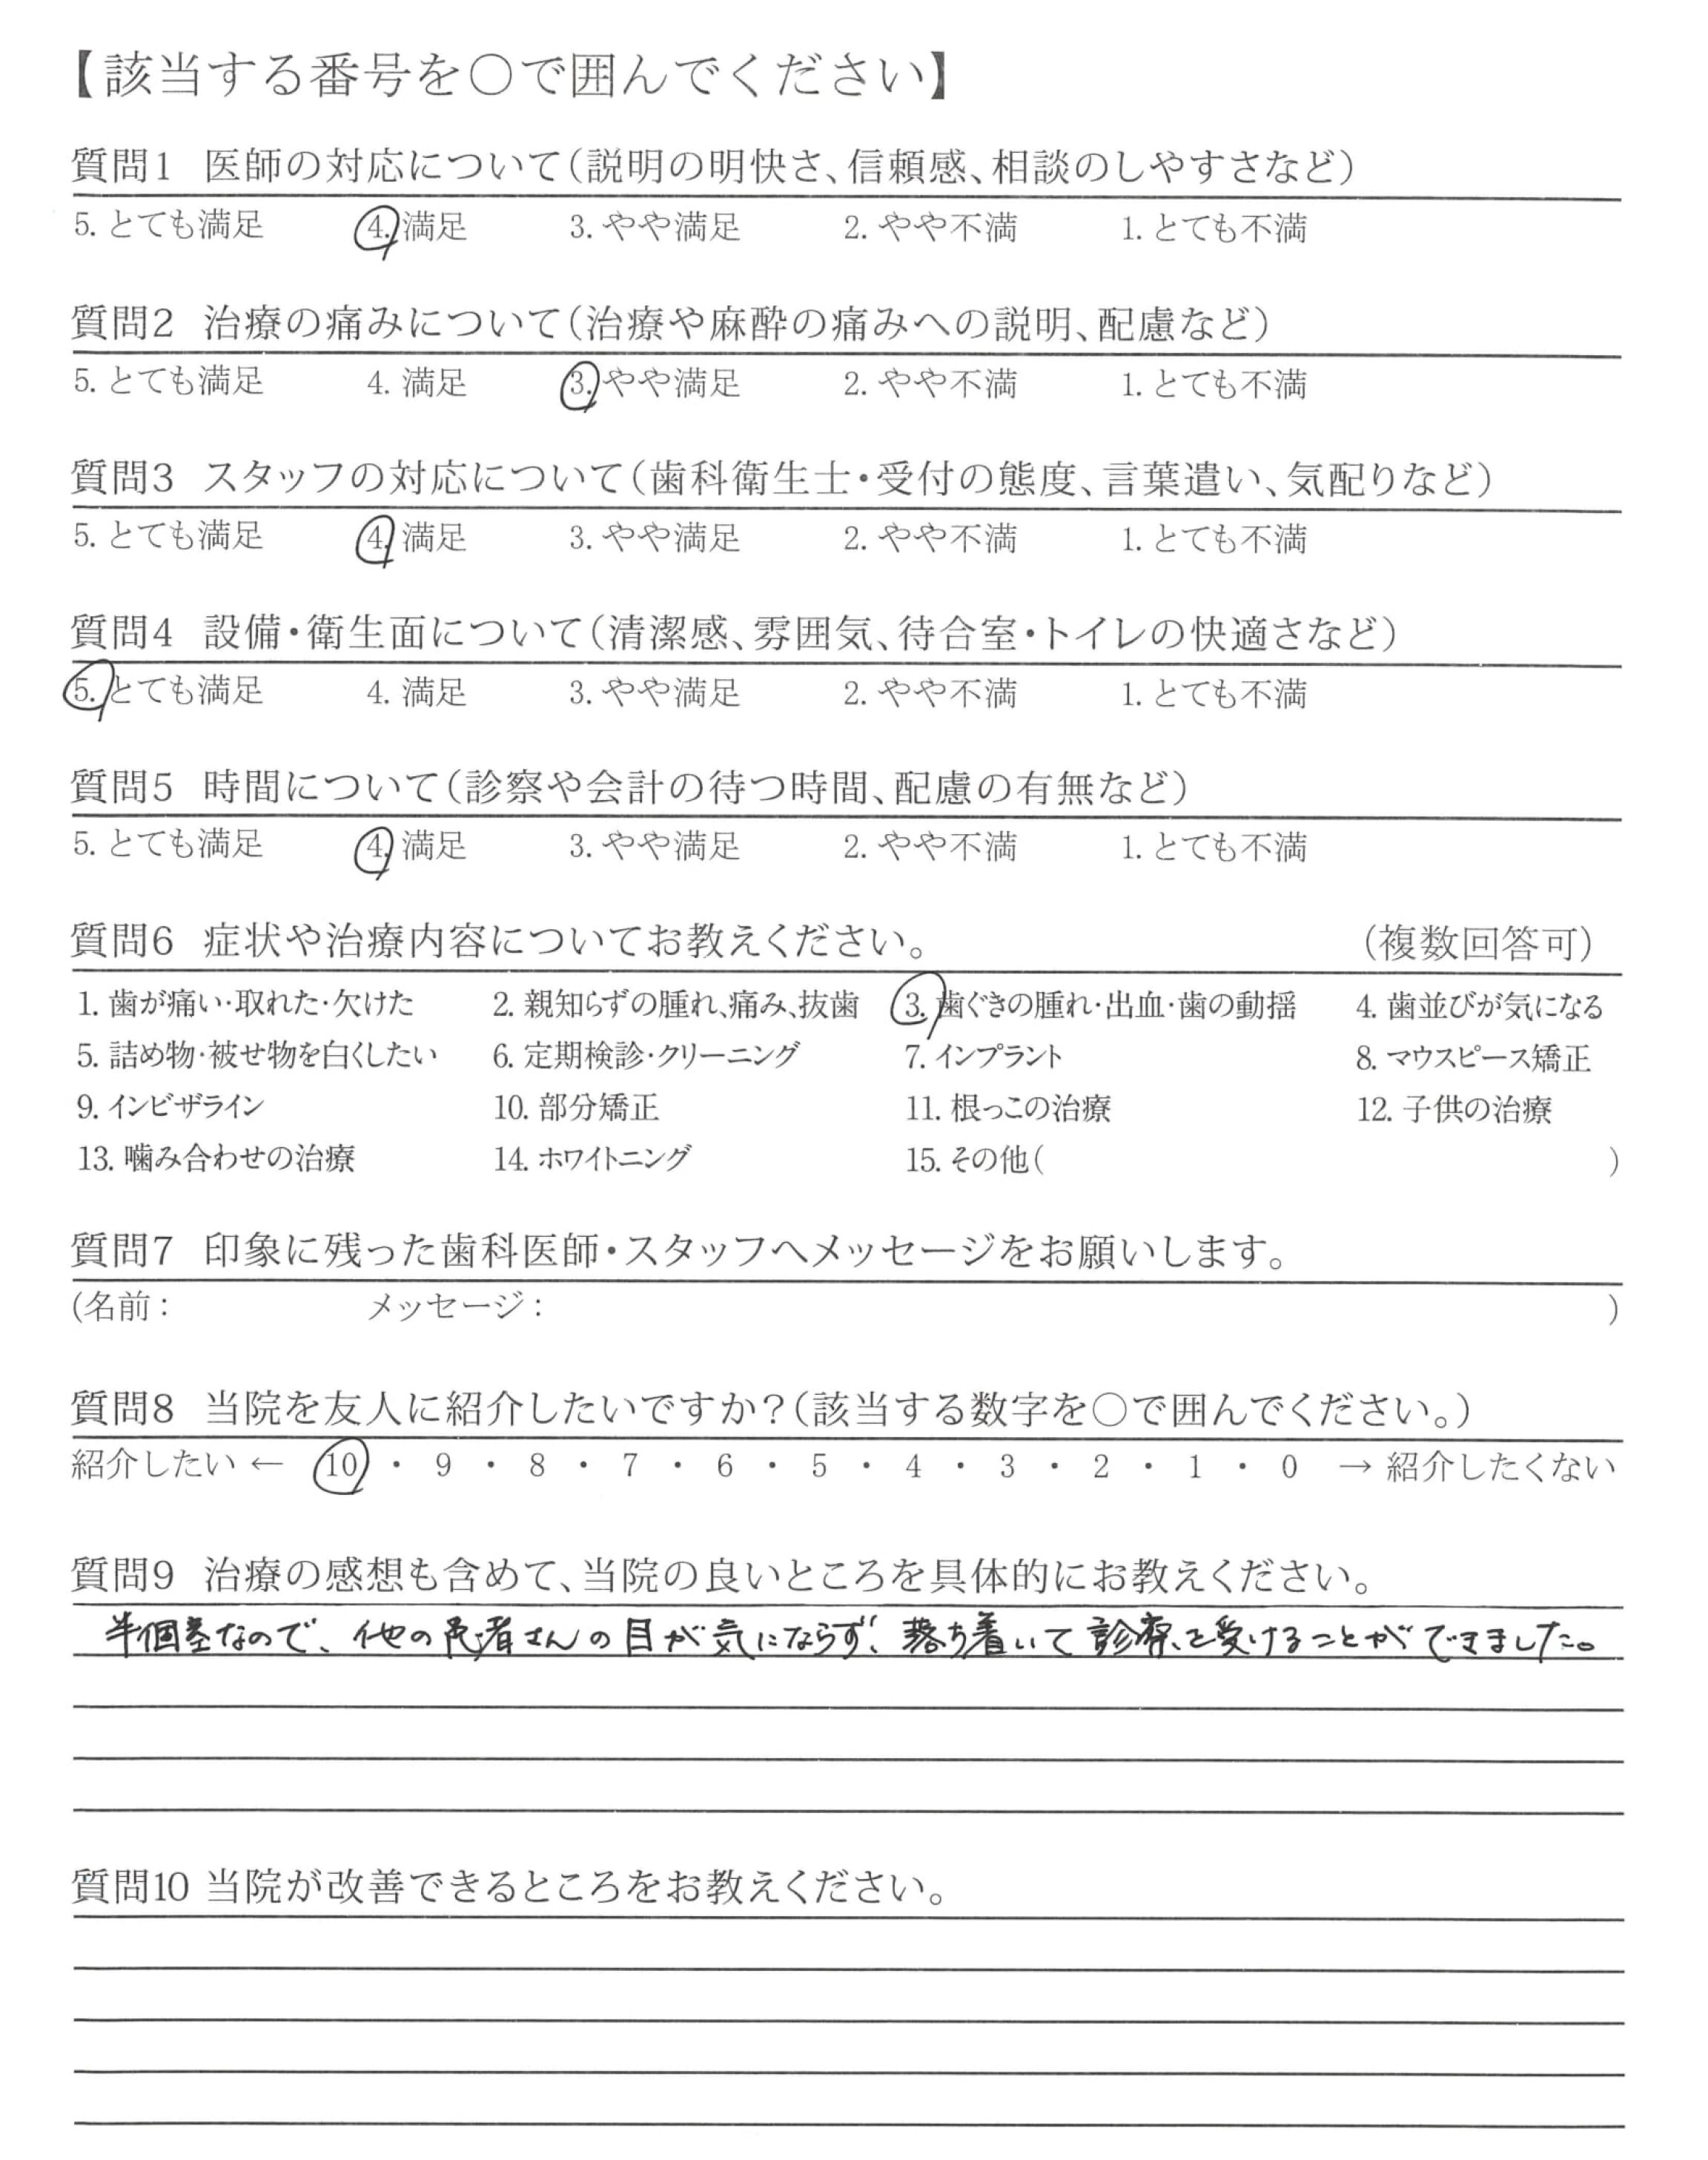 【該当する番号を○で囲んでください】
質問1 医師の対応について（説明の明快さ、信頼感、相談のしやすさなど）
5. とても満足 4. 満足 3. やや満足 2. やや不満 1. とても不満
質問2 治療の痛みについて（治療や麻酔の痛みへの説明、配慮など）
5. とても満足 4. 満足 3. やや満足 2. やや不満 1. とても不満
質問3 スタッフの対応について（歯科衛生士・受付の態度、言葉遣い、気配りなど）
5. とても満足 4. 満足 3. やや満足 2. やや不満 1. とても不満
質問4 設備・衛生面について（清潔感、雰囲気、待合室・トイレの快適さなど）
5. とても満足 4. 満足 3. やや満足 2. やや不満 1. とても不満
質問5 時間について（診察や会計の待つ時間、配慮の有無など）
5. とても満足 4. 満足 3. やや満足 2. やや不満 1. とても不満
質問6 症状や治療内容についてお教えください。 （複数回答可）
1. 歯が痛い・取れた・欠けた 2. 親知らずの腫れ、痛み、抜歯 3. 歯ぐきの腫れ・出血・歯の動揺 4. 歯並びが気になる
5. 詰め物・被せ物を白くしたい 6. 定期検診・クリーニング 7. インプラント 8. マウスピース矯正
9. インビザライン 10. 部分矯正 11. 根っこの治療 12. 子供の治療
13. 噛み合わせの治療 14. ホワイトニング 15. その他（ ）
質問7 印象に残った歯科医師・スタッフへメッセージをお願いします。
（名前： メッセージ： ）
質問8 当院を友人に紹介したいですか？（該当する数字を○で囲んでください。）
紹介したい ← 10 ・ 9 ・ 8 ・ 7 ・ 6 ・ 5 ・ 4 ・ 3 ・ 2 ・ 1 ・ 0 → 紹介したくない
質問9 治療の感想も含めて、当院の良いところを具体的にお教えください。
半個室なので、他の患者さんの目が気にならず、落ち着いて診察を受けることができました。
質問10 当院が改善できるところをお教えください。